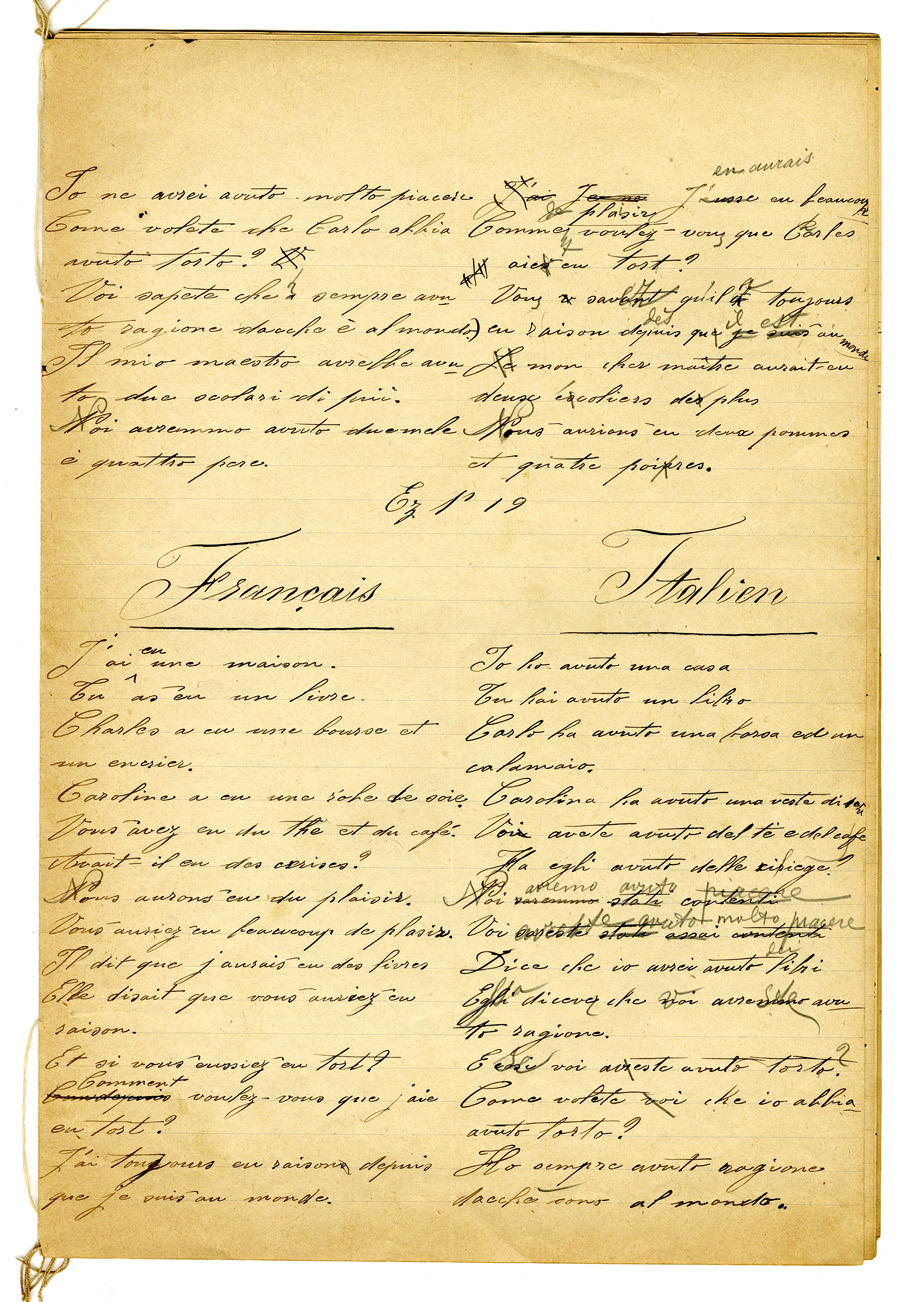 en aurais
Io ne avrei avuto molto piacere J'ai Je ne J'eusse eu beaucoup
de plaisir
Come volete che Carlo abbia Comment voulez-vous que Charles
avuto torto? aies eu tort?
Voi sapete che a sempre avu Vous savent qu'il a toujours
dès il est
to ragione dacche è al mondo) eu raison depuis que je suis au monde
Il mio maestro avrebbe avu Le mon cher maître aurait eu
to due scolari di più. deux écoliers de plus
Noi avremmo avuto due mele Nous aurions eu deux pommes
è quattro pere. et quatre poires.
Ez 19
Français Italien
eu
J'ai une maison. Io ho avuto una casa
Tu as eu un livre. Tu hai avuto un libro
Charles a eu une bourse et Carlo ha avuto una borsa ed un
un encrier. calamaio.
Caroline a eu une robe de soie. Carolina ha avuto una veste di seta
Vous avez eu du thé et du café. Voi avete avuto del tè e del cafe
Avait-il eu des cerises? Ha egli avuto delle ciriege?
avremo avuto piacere
Nous aurons eu du plaisir. Noi saremmo stati contenti
avreste avuto molto piacere
Vous auriez eu beaucoup de plasir. Voi sareste stati assai contenti
dei
Il dit que j'aurais eu des livres Dice che io avrei avuto libri
Elle disait que vous auriez eu Egli diceva che voi avremmo avu
raison. to ragione.
Et si vous eussiez eu tort? E se voi avreste avuto torto?
Comment
voulez-vous que j'aie Come volete voi che io abbia
eu tort? avuto torto?
J'ai toujours eu raison depuis Ho sempre avuto ragione
que je suis au monde. dacchè sono al mondo.